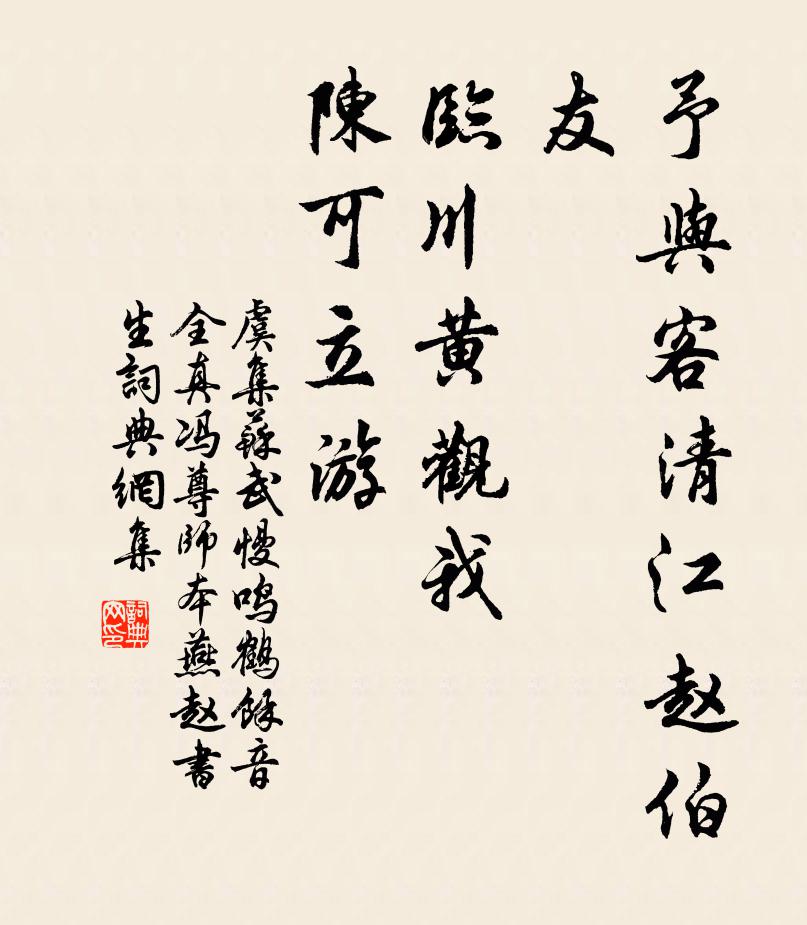 予與客清江赵伯
友
臨川黄觀我
陳可立游
虞集蘇武慢鸣鶴餘音
全真冯尊師本燕赵書
生詞典網集
詞典
网印